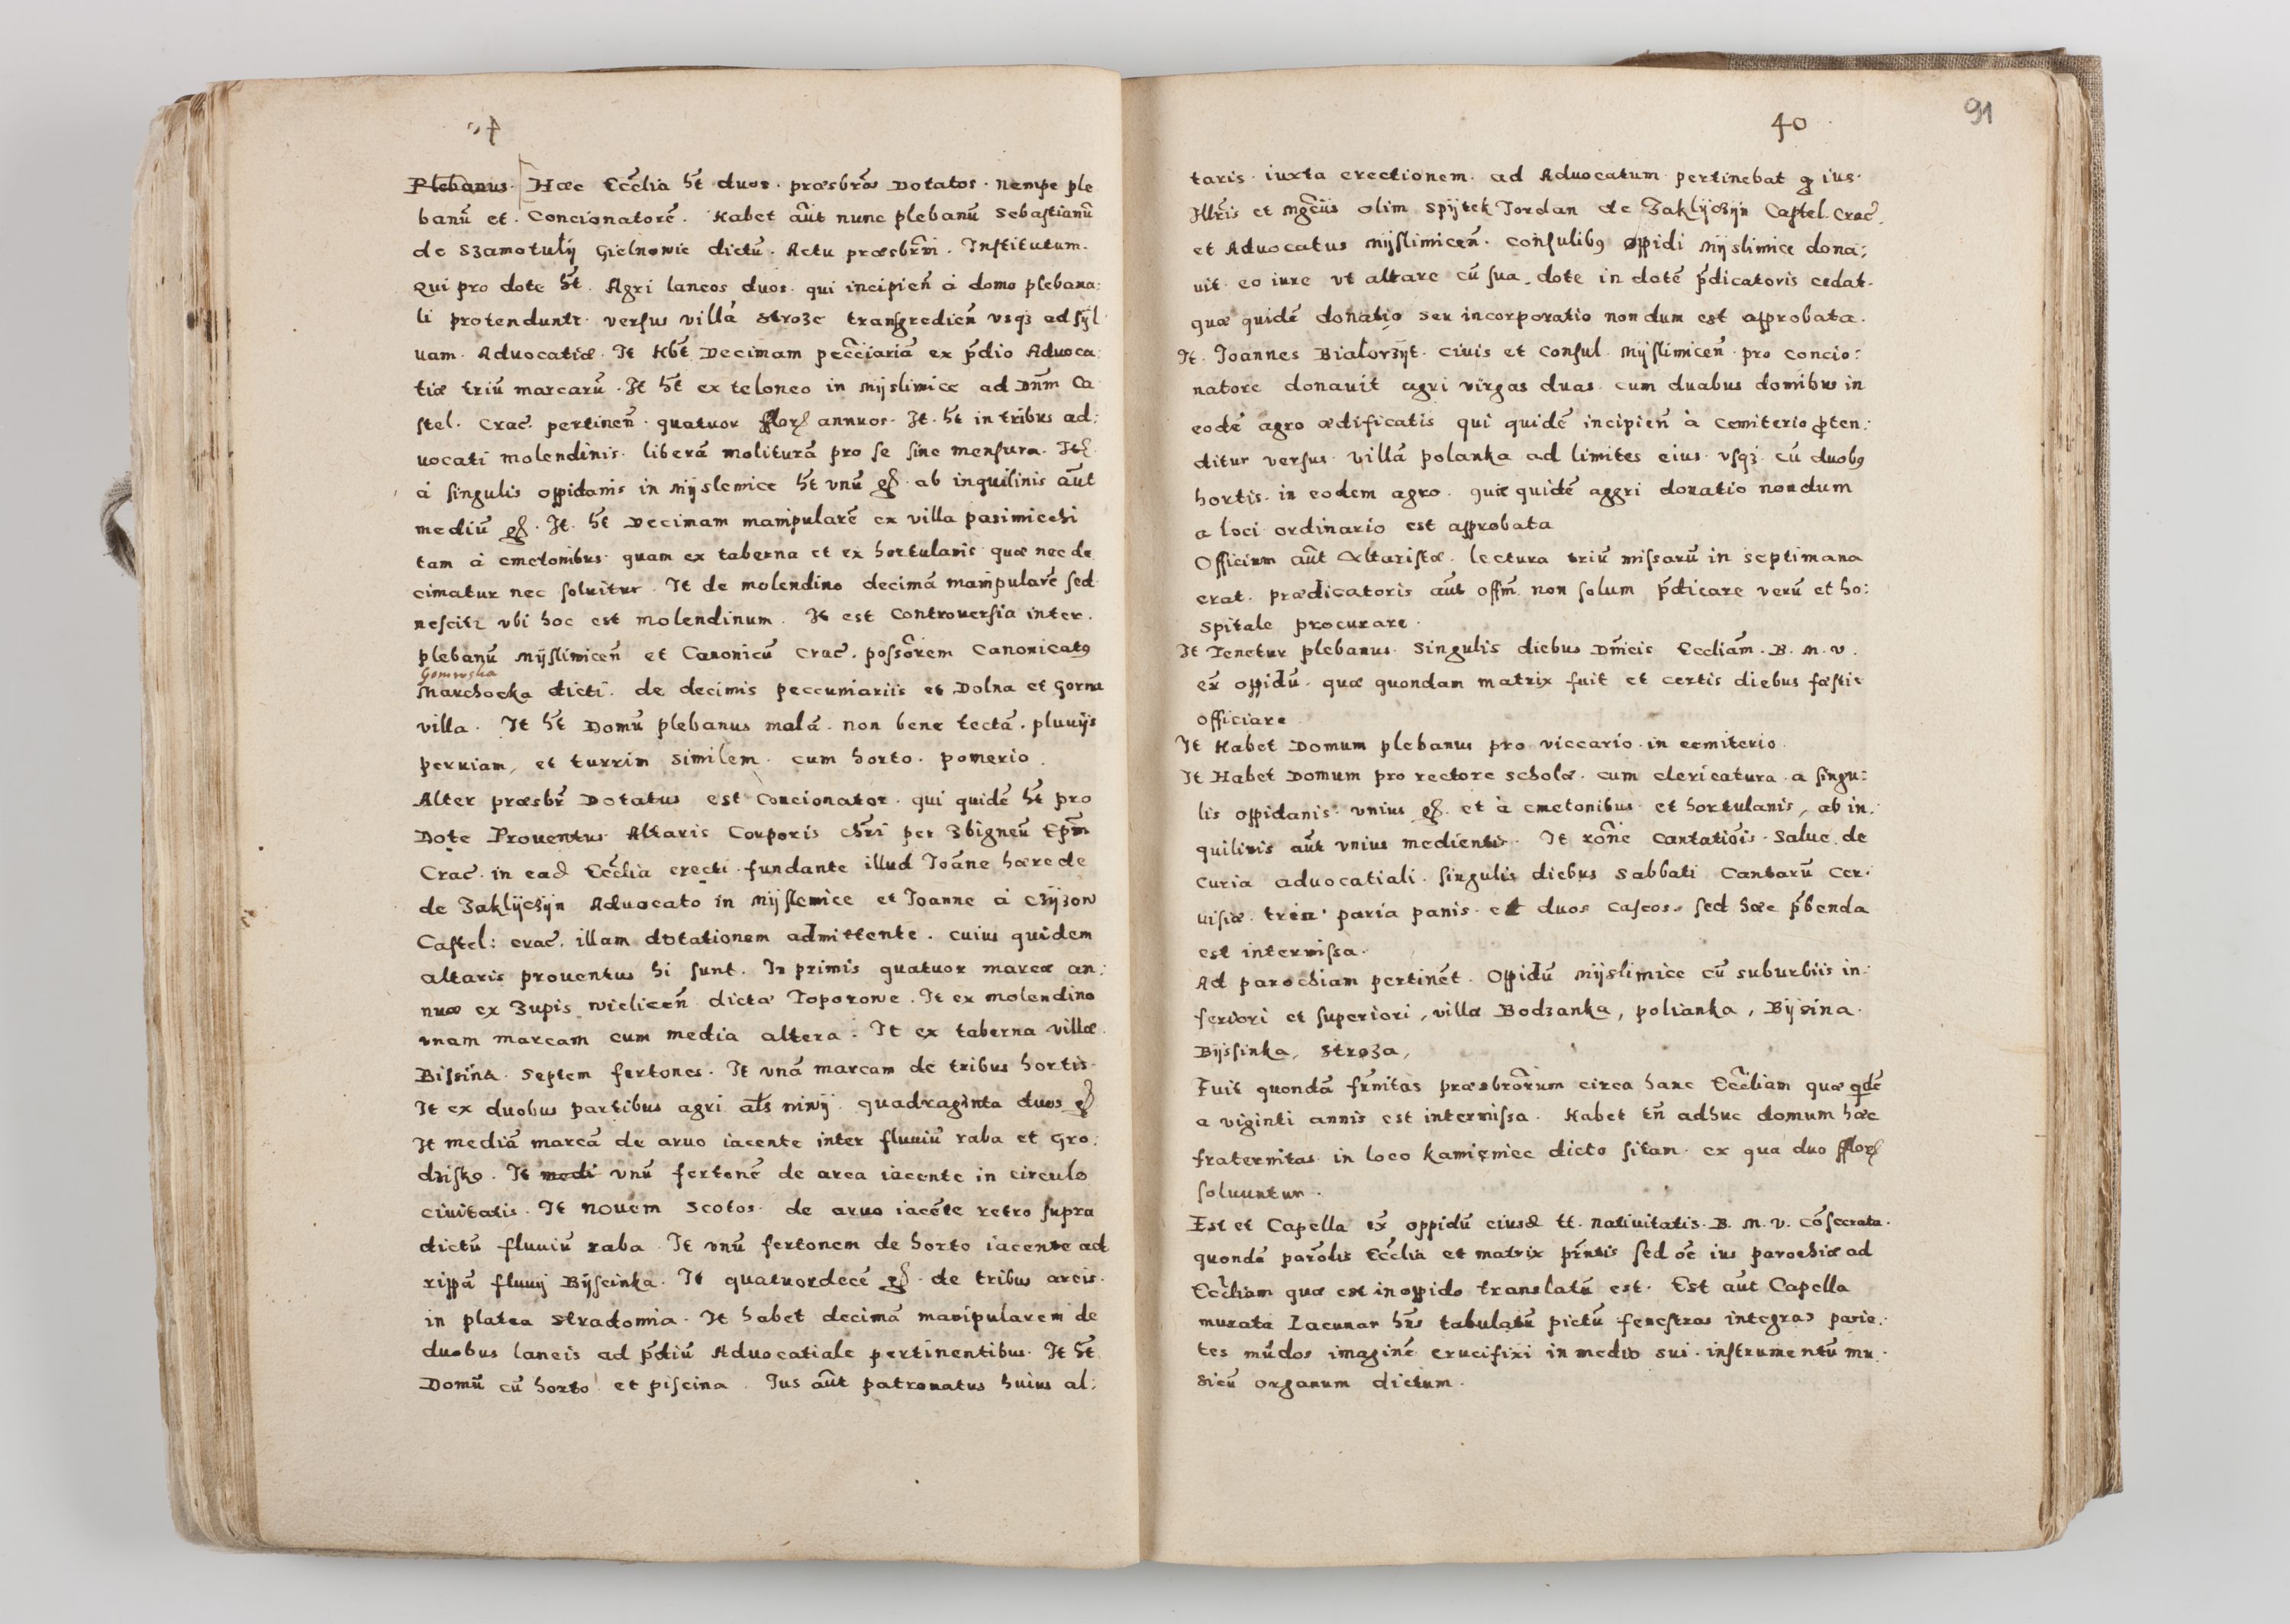 Plebanus. Hæc Eccĺia h̃t duos. præsbr̃os Dotatos. Nempe ple
banũ et. Concionatorẽ. Habet aũt nunc plebanũ Sebaſtianũ
de Szamotulÿ Gielnowic dictũ. Actu præsbr̃m. Inſtitutum.
Qui pro dote h̃t. Agri laneos duos. qui incipieñ à domo plebana:
li protenduntr. verſus villã Stroze tranſgredieñ vsqȝ ad ſÿl
uam. Advocatiæ. It Hb̃t Decimam pecc̃iariã ex p̃dio Advoca:
tiæ triũ marcarũ. It h̃t ex teloneo in Mÿslimice ad Dñm Ca
ſtel. Crac̃. pertineñ. quatuor fflor annuos. It. h̃t in tribus ad:
uocati molendinis. liberã moliturã pro ſe ſine menſura. It
à ſingulis oppidanis in Mÿslemice h̃t vnũ gſ. ab inquilinis aũt
mediũ gſ. It. h̃t Decimam manipularẽ ex villa pasimiechi
tam à cmetonibus quam ex taberna et ex hortulanis quæ nec de
cimatur nec ſoluitur. It de molendino decimã manipularẽ ſed
neſciti vbi hoc est molendinum. It est Controverſia inter.
plebanũ Mÿſlimiceñ et Canonicũ Crac̃. poſsõrem Canonicatꝰ
Gomowska
Marchocka dicti. de decimis peccuniariis et Dolna et Gorna
villa. It h̃t Domũ plebanus malã. non bene tectã. pluuÿs
perviam, et turrim similem. cum horto. pomerio.
Alter præsbr̃ Dotatus est Concionator. qui quidẽ h̃t pro
Dote Proventus Altaris Corporis chr̃i per Zbigneũ Ep̃m
Crac̃. in ead Eccĺia erecti. fundante illud Joãne hærede
de Zaklÿczÿn Aduocato in Mÿſlemice et Joanne à czÿzow
Caſtel: crac̃. illam dotationem admittente. cuius quidem
altaris prouentus hi ſunt. In primis quatuor marcæ an:
nuæ ex Zupis wieliceñ dictæ Toporowe. It ex molendino
vnam marcam cum media altera. It ex taberna villæ
Biſsina. Septem fertones. It vnã marcam de tribus hortis.
It ex duobus partibus agri al̃s niwÿ. quadraginta duos gſ
It mediã marcã de aruo iacente inter fluuiũ raba et Gro:
dziſko. It medi vnũ fertonẽ de area iacente in circulo
ciuitatis. It novem Scotos. de aruo iacẽte retro ſupra
dictũ fluuiũ raba. It vnũ fertonem de horto iacente ad
rippã fluuij Bÿſcinka. It quatuordecẽ gſ. de tribus areis.
in platea Stradomia. It habet decimã manipularem de
duobus laneis ad p̃diũ Advocatiale pertinentibus. It h̃t
Domũ cũ horto et piſcina. Jus aũt patronatus huius al:
40
91
taris. iuxta erectionem. ad Advocatum pertinebat ius.
Illr̃is et Mgc̃ijs olim Spÿtek Jordan de Zaklÿczÿn Caſtel. Crac̃.
et Advocatus Mÿſlimiceñ. Conſulibꝰ oppidi Mÿslimice dona:
uit eo iure vt altare cũ ſua. dote in dotẽ p̃dicatoris cedat.
quæ quidẽ donatio seu incorporatio non dum est approbata.
It. Joannes Bialorzÿt. Ciuis et Conſul. Mÿſlimiceñ. pro concio:
natore donauit agri virgas duas. cum duabus domibus in
eodẽ agro ædificatis qui quidẽ incipieñ à cemiterio ꝓten:
ditur verſus. Villã polanka ad limites eius. vſqȝ. cũ duobꝰ
hortis. in eodem agro. quæ quidẽ aggri donatio nondum
a loci ordinario est approbata
Officium aũt Altariſtæ. lectura triũ miſsarũ in septimana
erat. prædicatoris aũt offm̃. non ſolum p̃dicare verũ et ho:
spitale procurare.
It Tenetur plebanus. Singulis diebus Dm̃icis Eccliam̃. B. M. V.
ex̃ oppidũ. quæ quondam matrix fuit et certis diebus fæſtis
officiare
It Habet Domum plebanus pro viccario. in cemiterio.
It Habet Domum pro rectore scholæ. cum clericatura. a ſingu:
lis oppidanis. vnius gſ. et à cmetonibus et hortulanis, ab in:
quilinis aũt vnius medientis. It rõne Cantatiõis. Salue. de
Curia aduocatiali. ſingulis diebus Sabbati Cantarũ Cer:
uiſiæ. tria. paria panis. et duos Caſeos. ſed hæc p̃benda
est intermiſsa.
Ad parochiam pertinẽt. Oppidũ Mÿslimice cũ suburbiis in:
feriori et ſuperiori, villæ Bodzanka, polianka, Bÿsina.
Bÿsſinka, Stroza,
Fuit quondã fr̃nitas præsbrõrum circa hanc Eccl̃iam quæ qdẽ
a viginti annis est intermiſsa. Habet tñ adhuc domum hæc
fraternitas in loco kamieniec dicto ſitam. ex qua duo fflor
ſoluuntur.
Est et Capella ex̃ oppidũ eiusd tt. Natiuitatis. B. M. V. Cõſecrata.
quondã parõlis Eccl̃ia et matrix pr̃ntis ſed oc̃ ius parochiæ ad
Eccl̃iam quæ est in oppido translatũ est. Est aũt Capella
murata Lacunar hñs tabulatũ pictũ feneſtras integras parie:
tes mũdos imaginẽ crucifixi in medio sui. inſtrumentũ mu:
sicũ organum dictum.